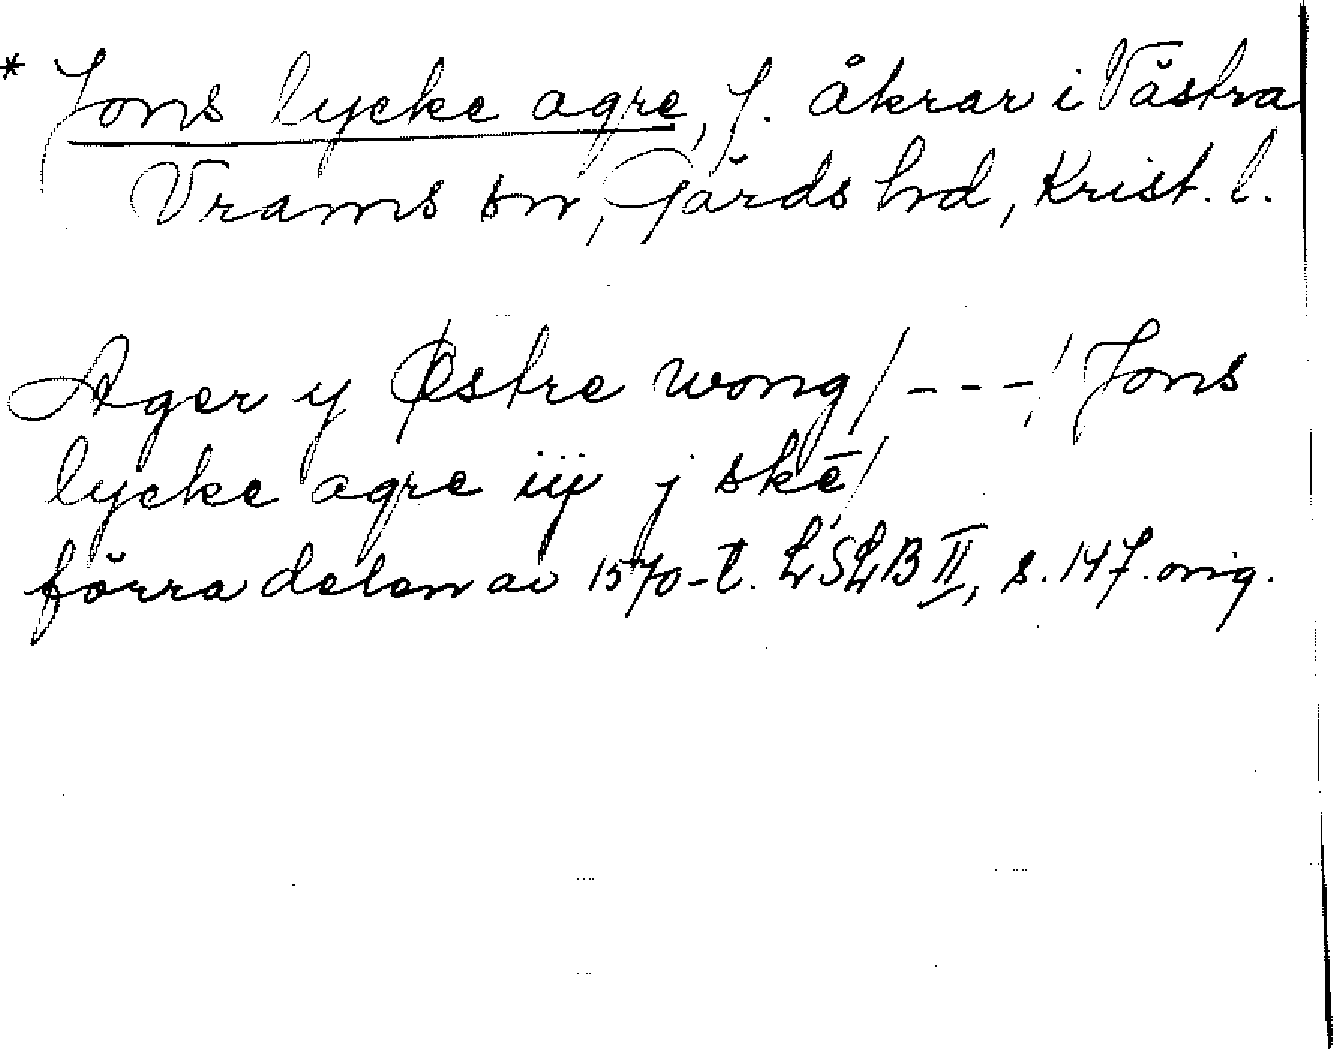 * Jons lycke agre, f. åkrar i Västra
Vrams sn, Gärds hd, Krist. l.
Ager y Østre wong/---/ Jons
lycke agre iij j skē/
förra delen av 1570-t. LSLB II, s. 147. orig.